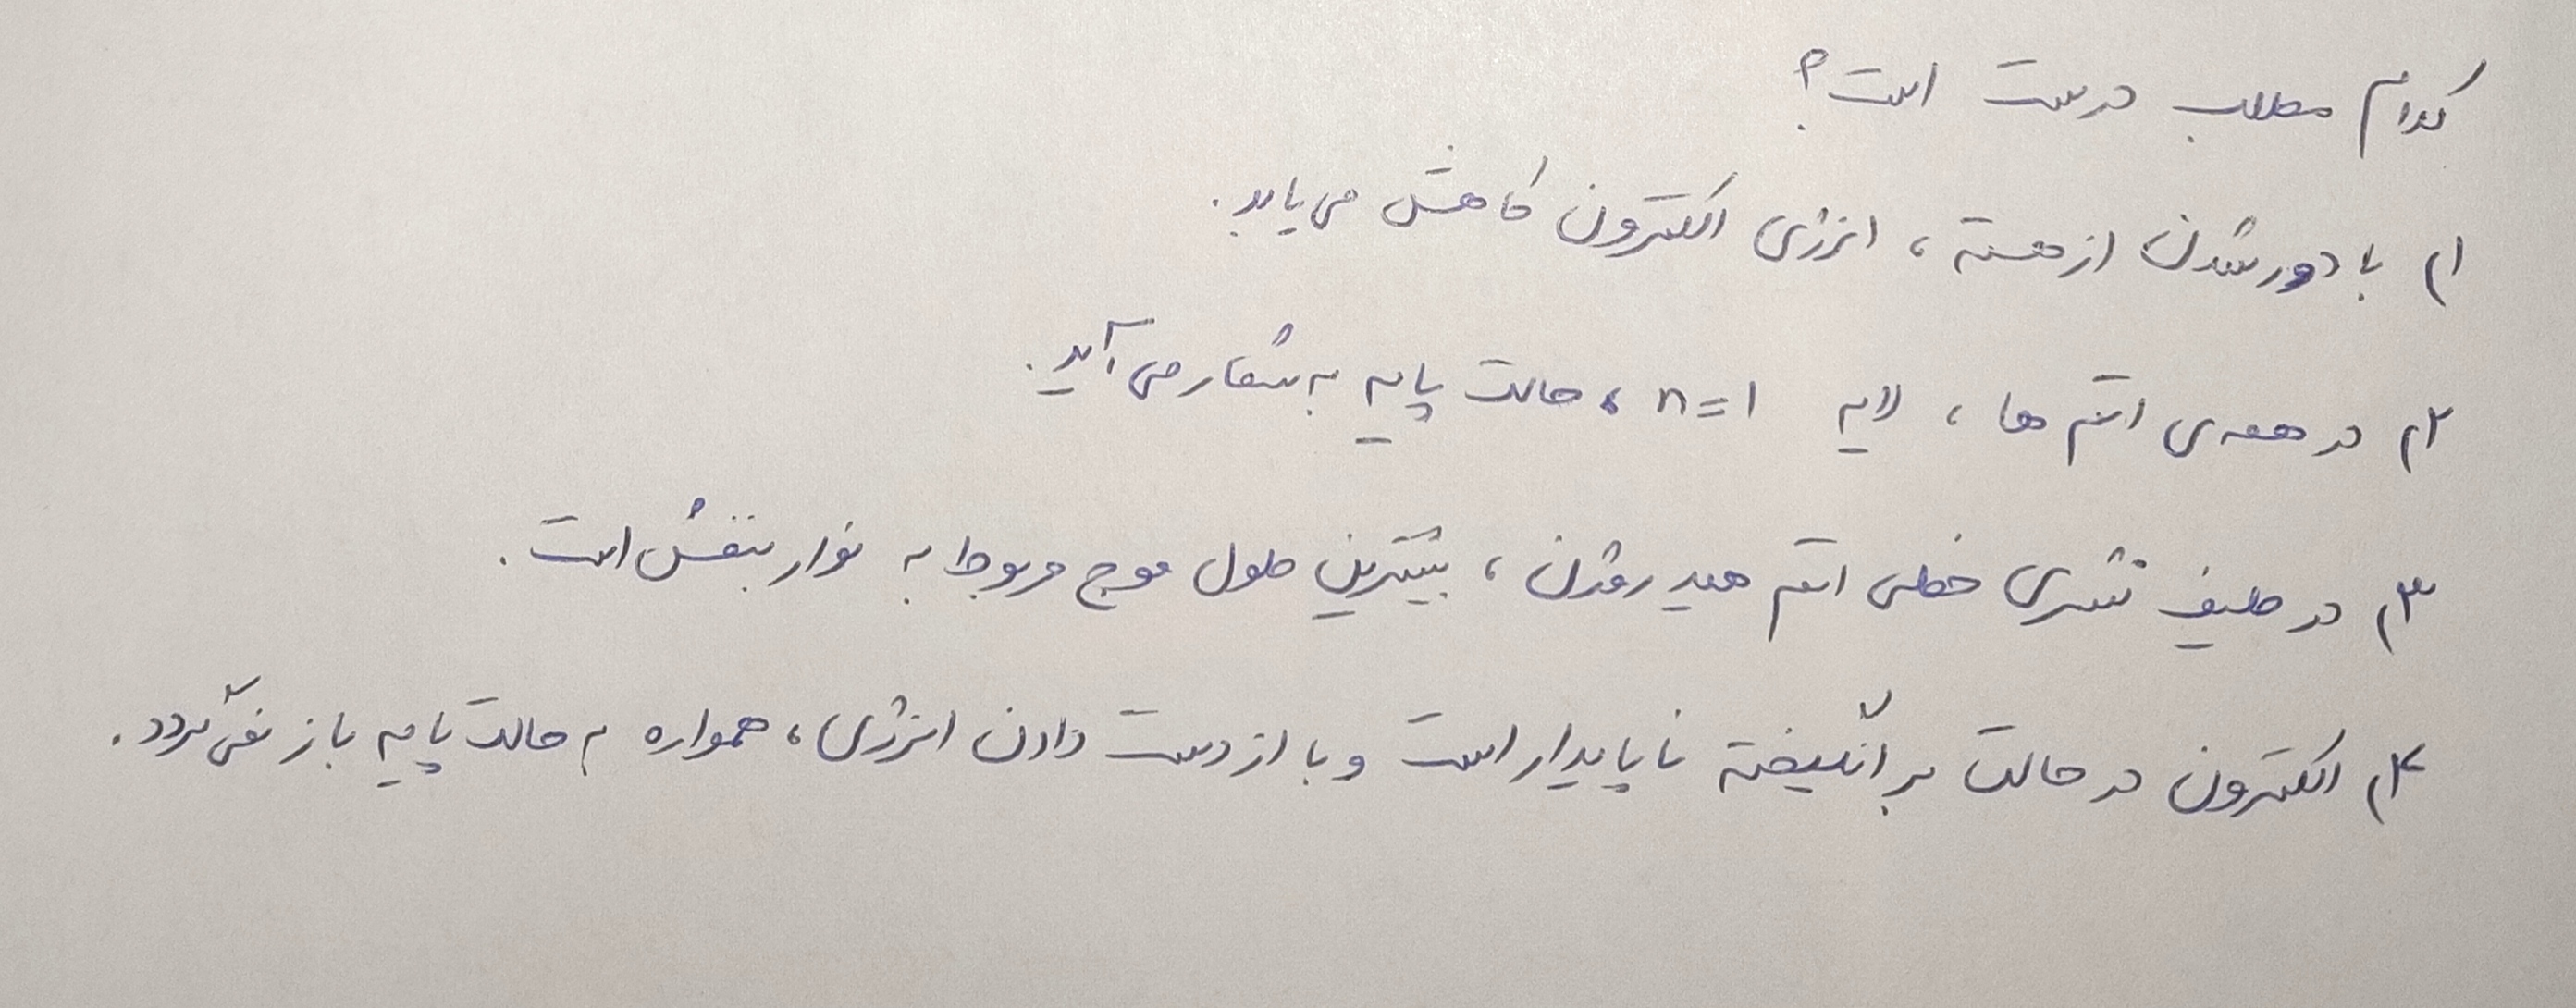 کدام مطلب درست است؟
۱) با دور شدن از هسته، انرژی الکترون کاهش می‌یابد.
۲) در همه‌ی اتم ها، لایه n=۱، حالت پایه به شمار می‌آید.
۳) در طیف نشری خطی اتم هیدروژن، بیشترین طول موج مربوط به نوار بنفش است.
۴) الکترون در حالت برانگیخته ناپایدار است و با از دست دادن انرژی، همواره به حالت پایه باز نمی‌گردد.